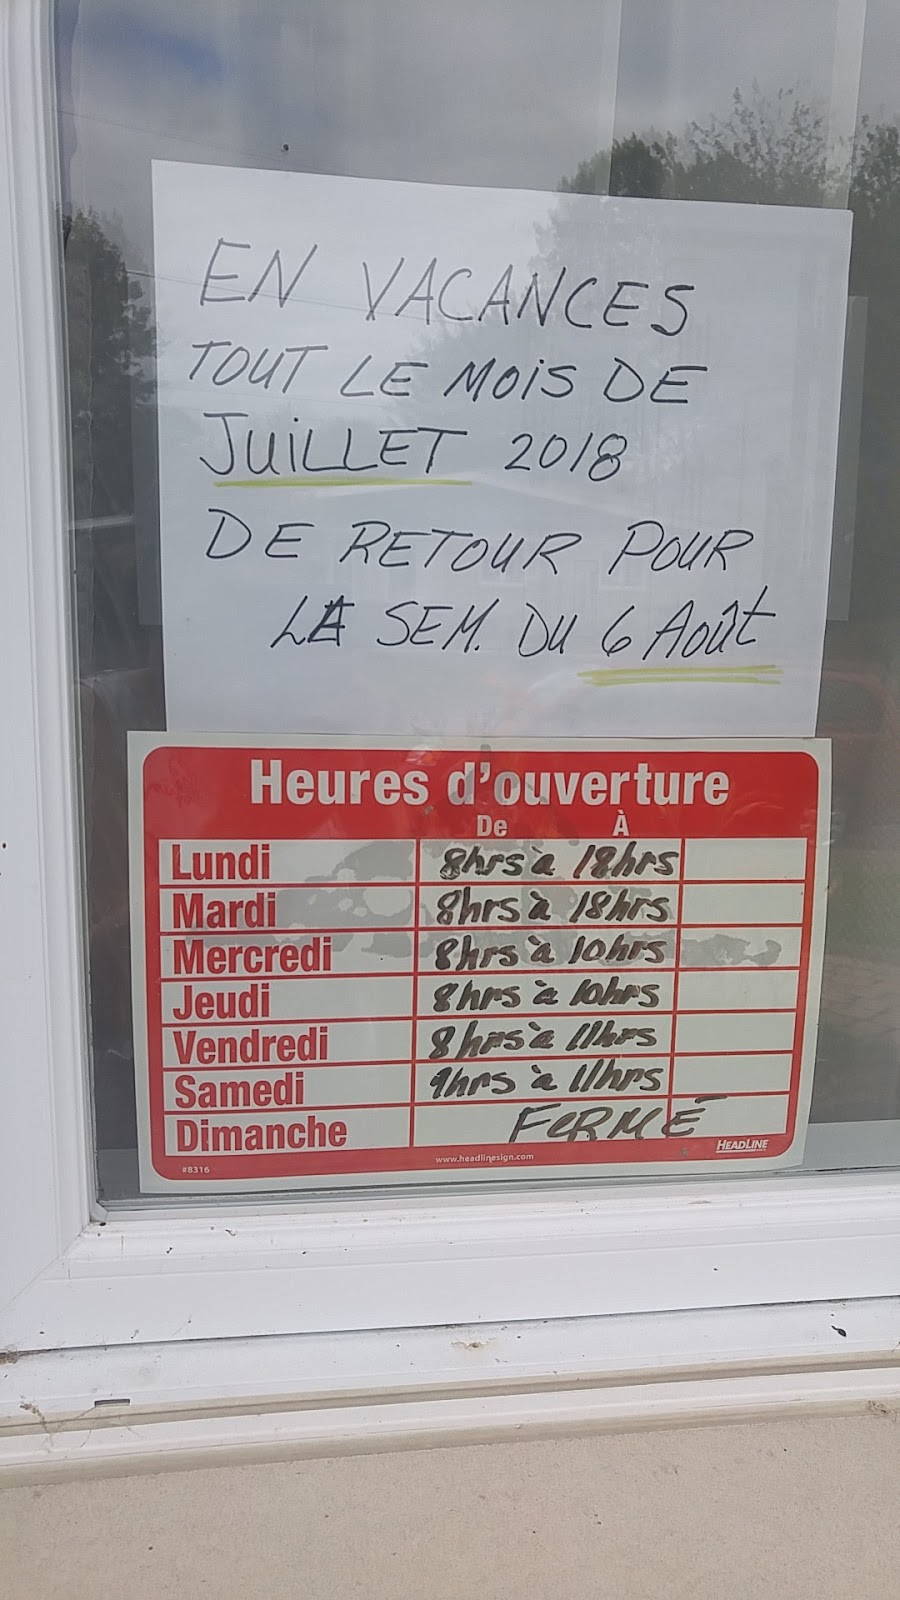 EN VACANCES
TOUT LE MOIS DE
JUILLET 2018
DE RETOUR POUR
LA SEM. DU 6 Août
Heures d'ouverture
De À
Lundi 8hrs à 18hrs
Mardi 8hrs à 18hrs
Mercredi 8hrs à 10hrs
Jeudi 8hrs à 10hrs
Vendredi 8hrs à 11hrs
Samedi 9hrs à 11hrs
Dimanche FERMÉ
#8316 www.headlinesign.com HEADLINE